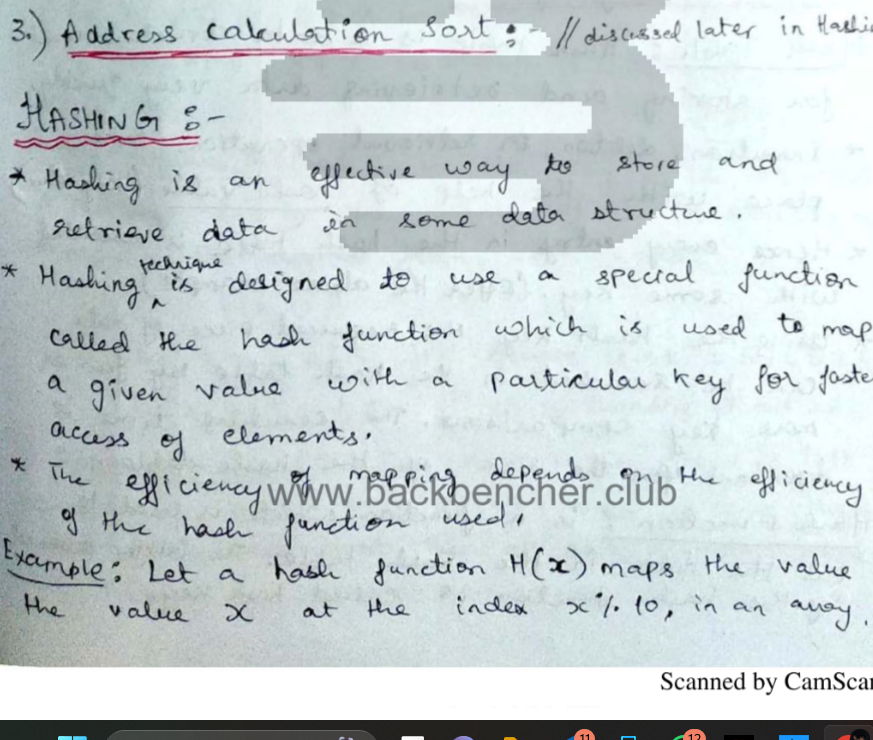 3.) Address calculation Sort :- // discussed later in Hashi
HASHING :-
* Hashing is an effective way to store and
retrieve data in some data structure.
technique
* Hashing ^ is designed to use a special function
called the hash function which is used to map
a given value with a particular key for faste
access of elements.
* The efficiency of mapping depends on the efficiency
www.backbencher.club
of the hash function used.
Example: Let a hash function H(x) maps the value
the value x at the index x % 10, in an array.
Scanned by CamScan
11
12